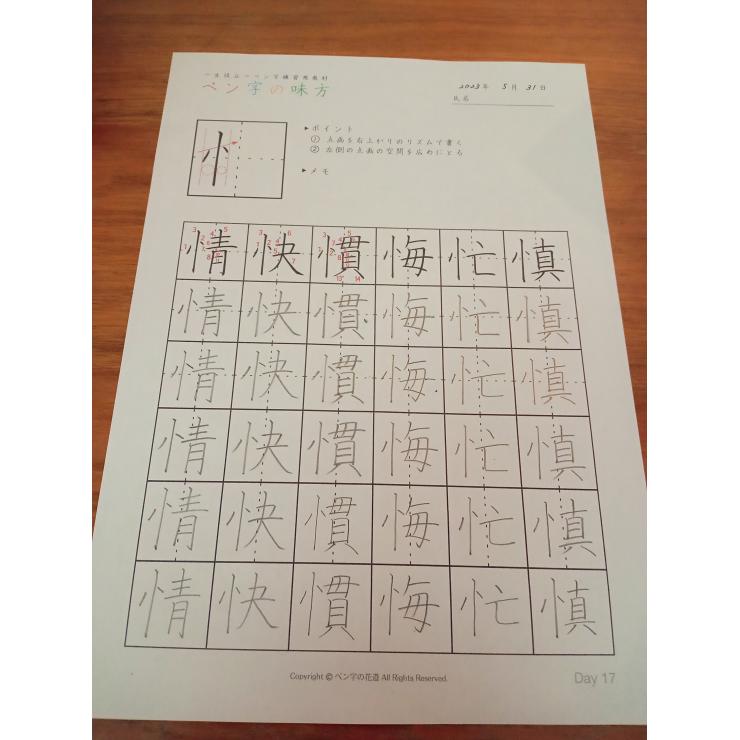 一生役立つペン字練習用教材
ペン字の味方
2023年 5月 31日
氏名
忄
▶ポイント
① 点画を右上がりのリズムで書く
② 左側の点画の空間を広めにとる
▶メモ
情 快 慣 悔 忙 慎
情 快 慣 悔 忙 慎
情 快 慣 悔 忙 慎
情 快 慣 悔 忙 慎
情 快 慣 悔 忙 慎
情 快 慣 悔 忙 慎
Copyright © ペン字の花道 All Rights Reserved.
Day 17